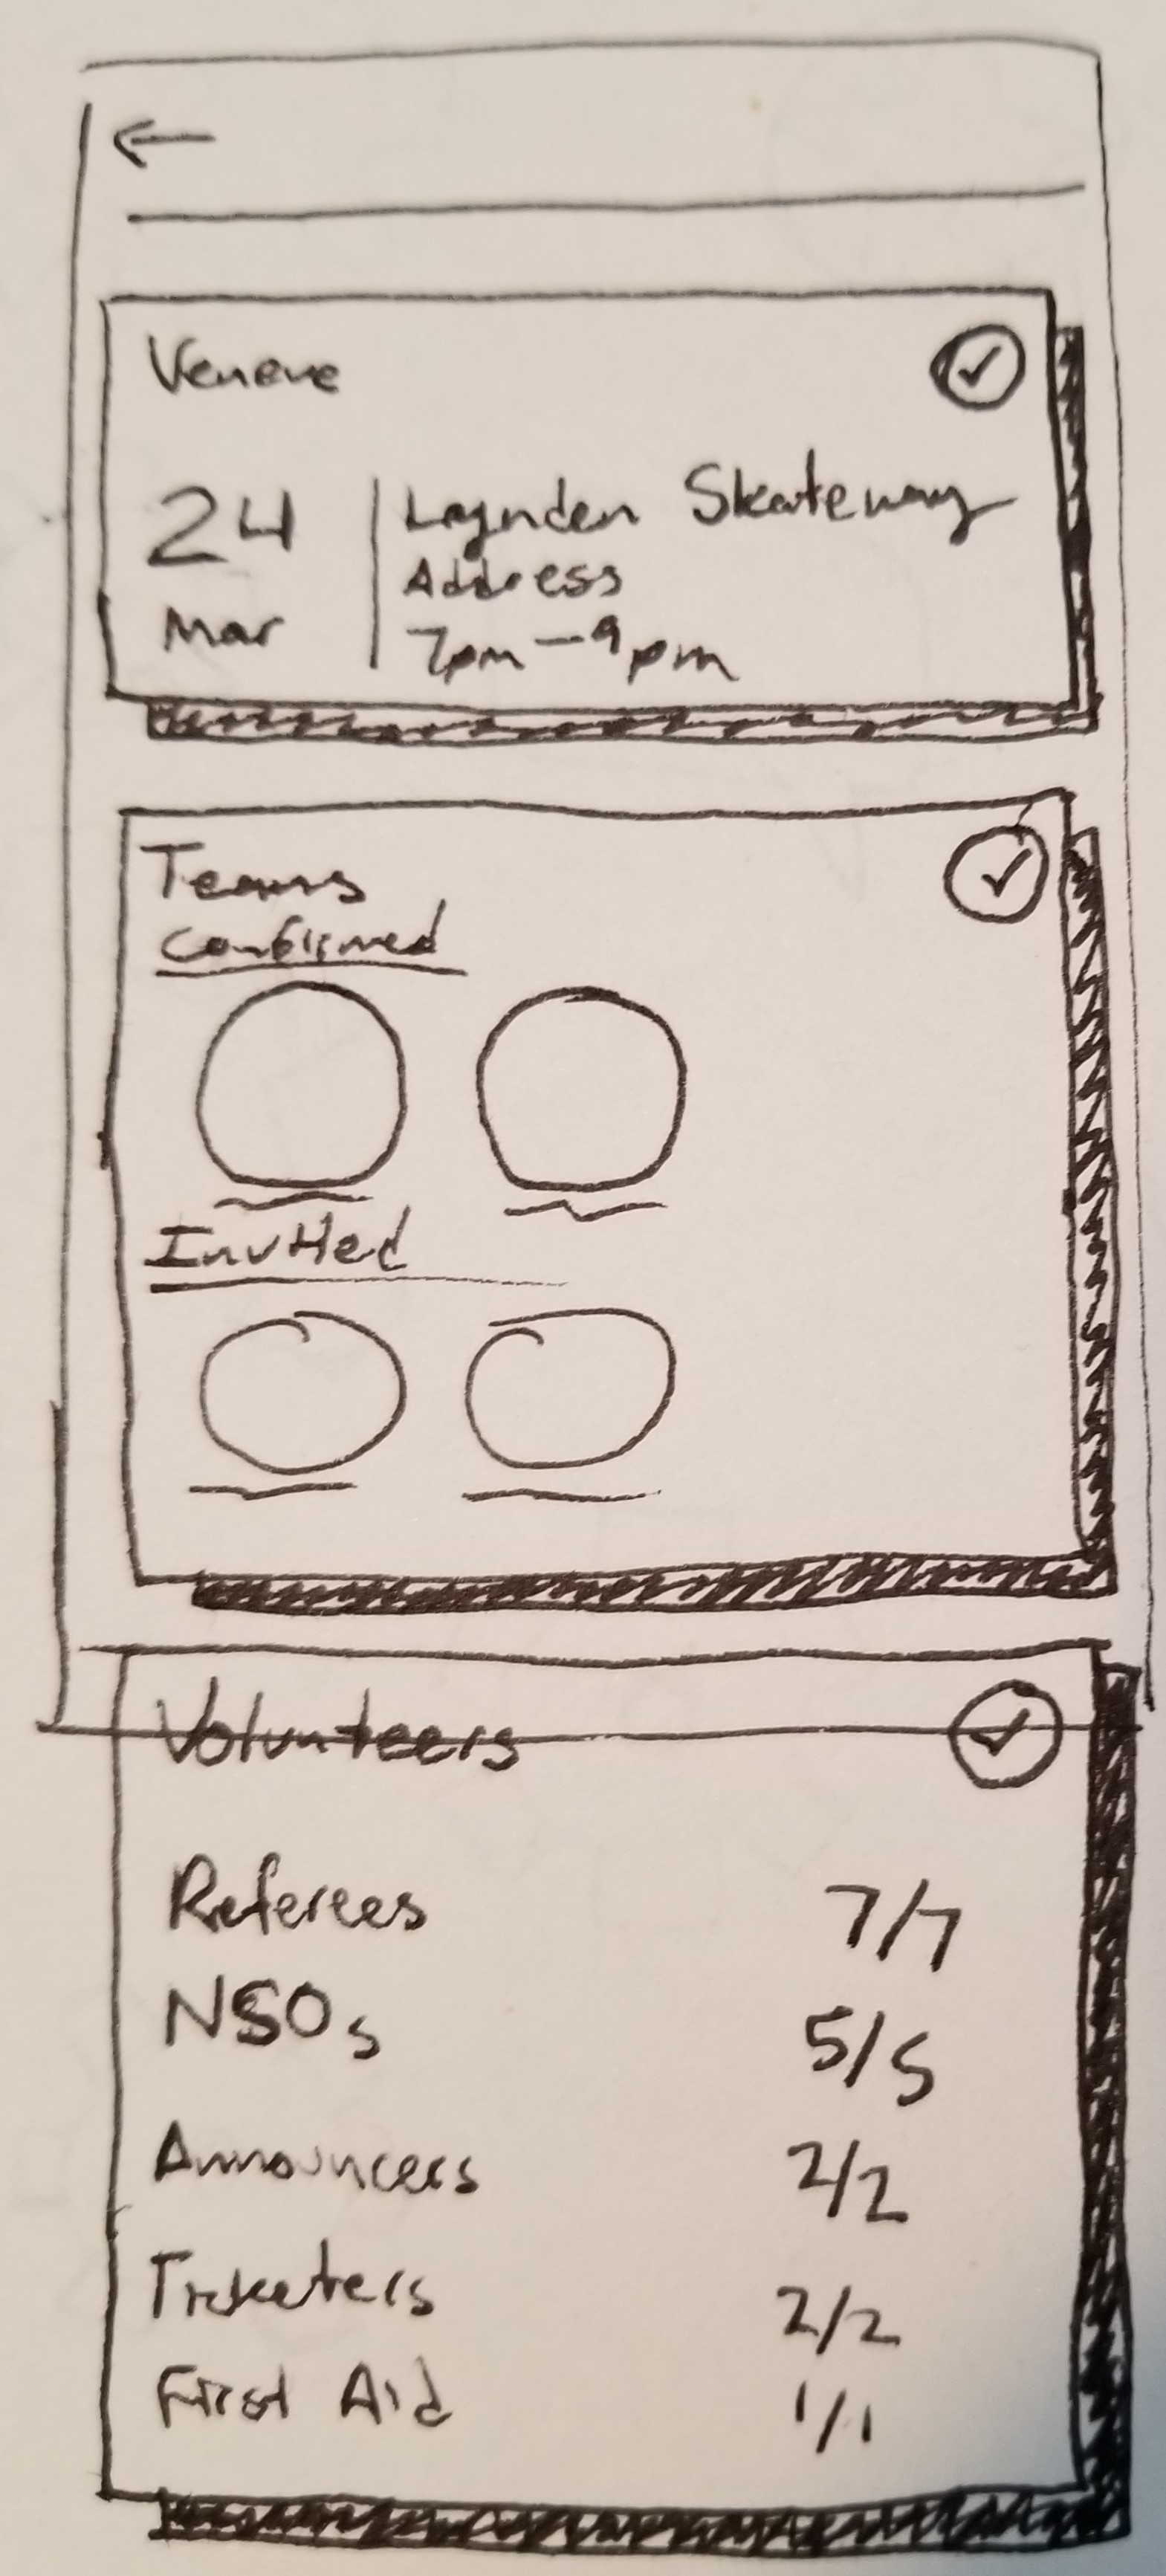 Veneue
24
Mar
Laynden Skateway
Address
7pm-9pm
Teams
Confirmed
Invited
Volunteers
Referees 7/7
NSOs 5/5
Announcers 2/2
Ticketers 2/2
First Aid 1/1